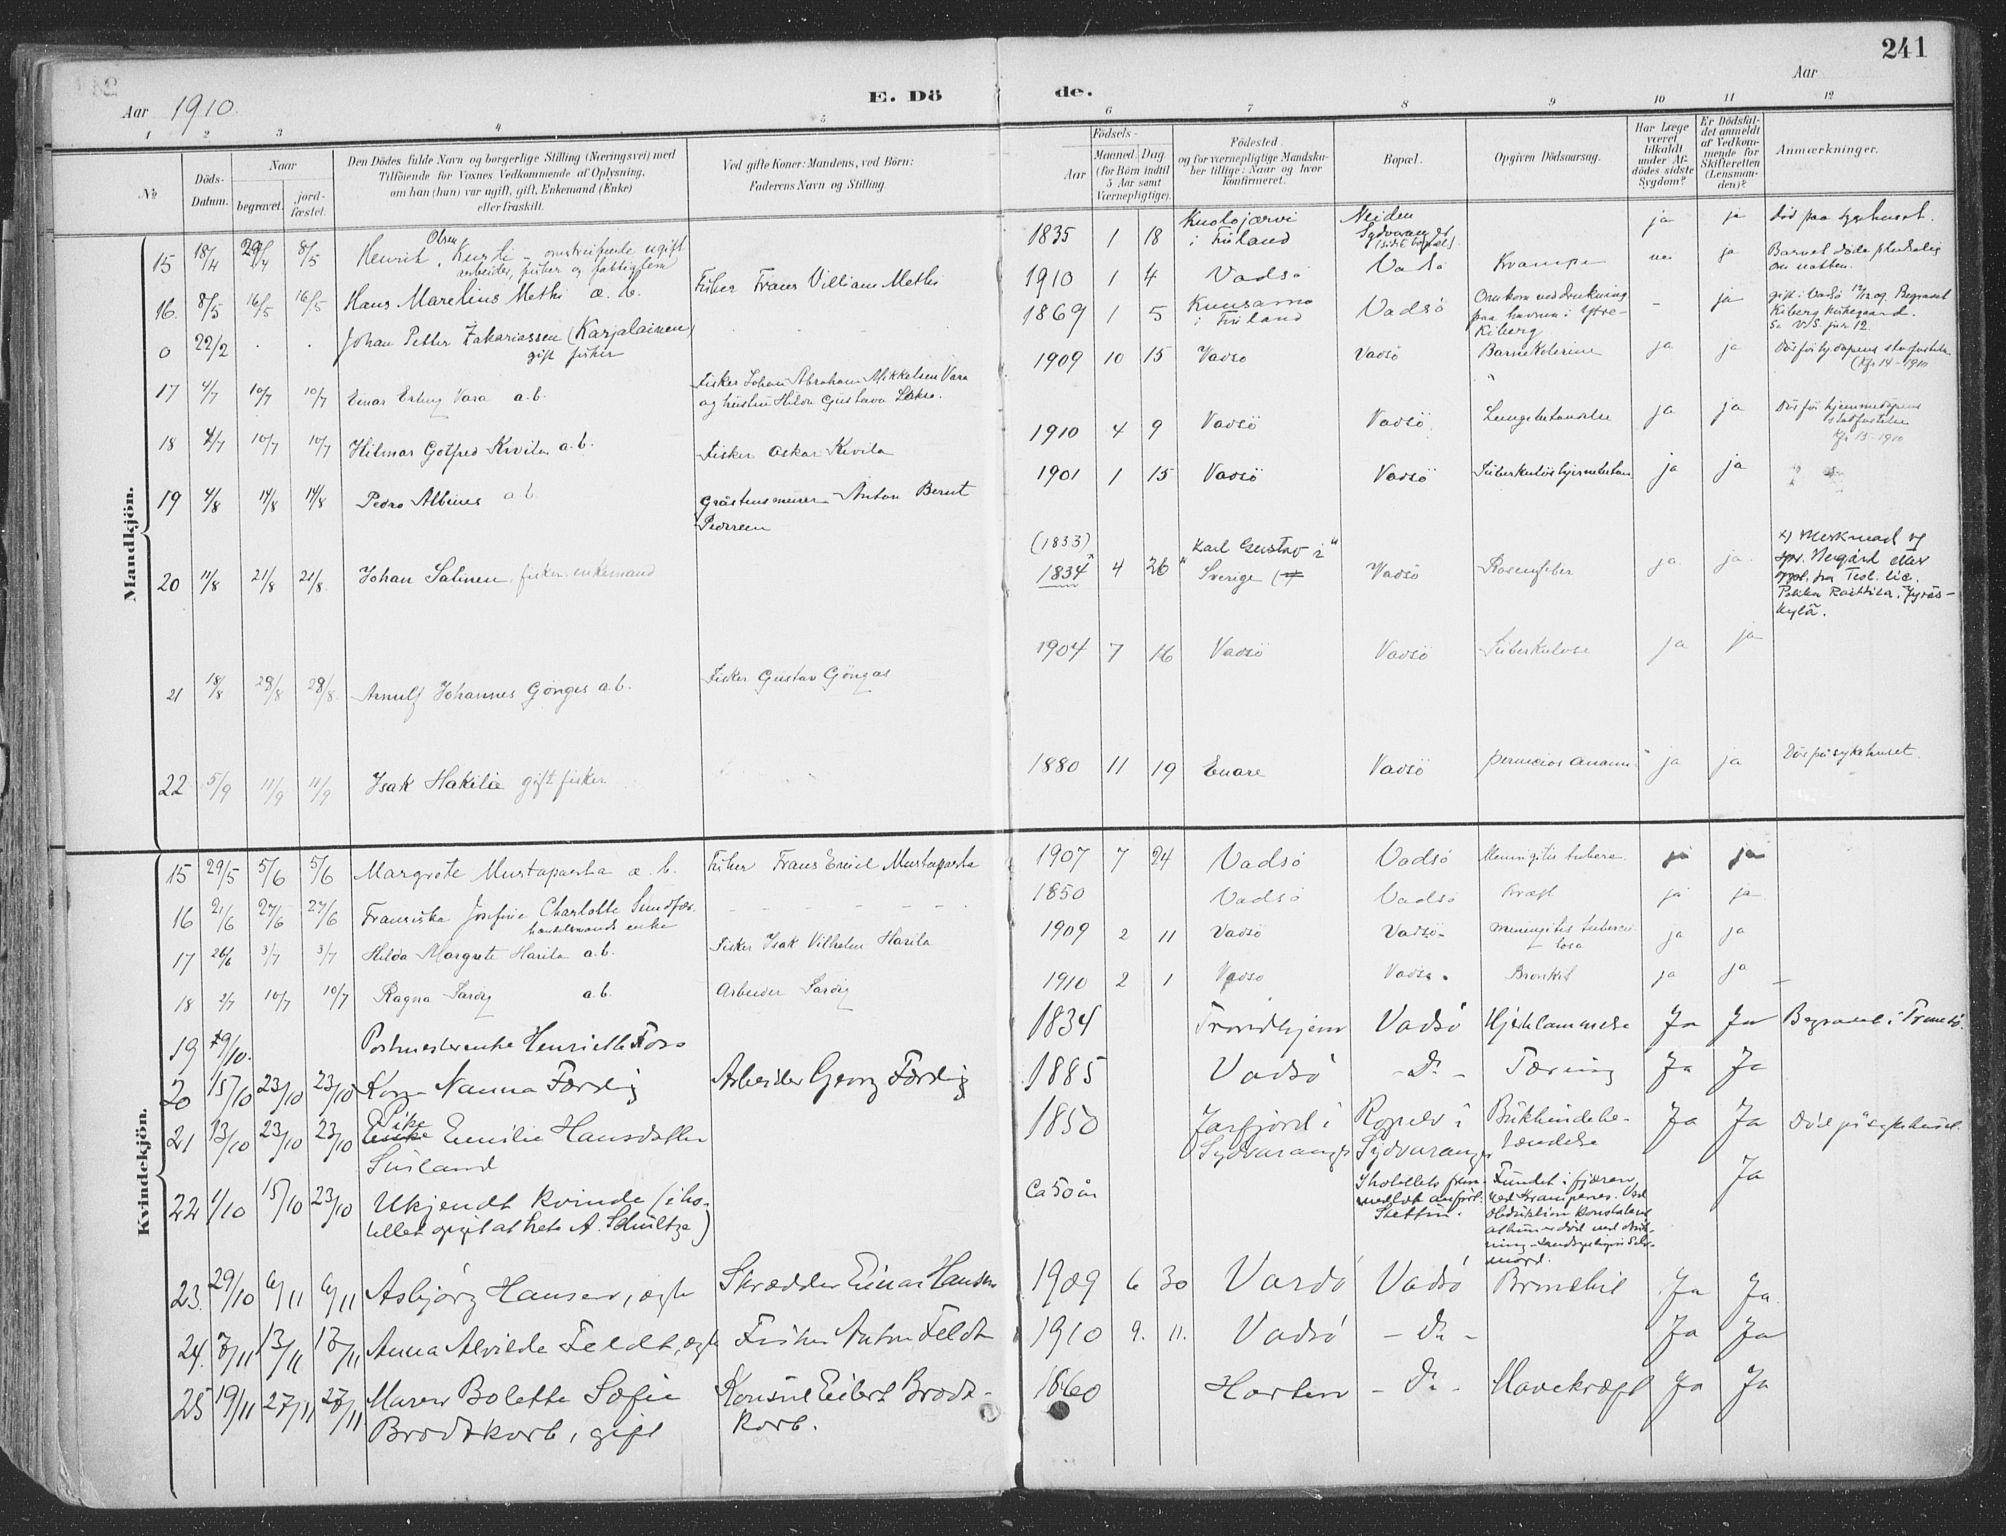 241
Aar 1910.
E. Döde.
Aar
1 2 3 4 5 6 7 8 9 10 11 12
No
Döds-
Datum.
Naar
begravet.
jord-
fæstet.
Den Dödes fulde Navn og borgerlige Stilling (Næringsvei) med
Tilföiende for Voxnes Vedkommende af Oplysning,
om han (hun) var ugift, gift, Enkemand (Enke)
eller fraskilt.
Ved gifte Koner: Mandens, ved Börn:
Faderens Navn og Stilling
Födsels-
Aar
Maaned. Dag.
(for Börn indtil
5 Aar samt
Værnepligtige).
Födested
og for værnepligtige Mandska-
ber tillige: Naar og hvor
konfirmeret.
Bopæl.
Opgiven Dödsaarsag.
Har Læge
været
tilkaldt
under Af-
dödes sidste
Sygdom?
Er Dödsfal-
det anmeldt
af Vedkom-
mende for
Skifteretten
(Lensman-
den)?
Anmærkninger.
Mandkjön.
15 18/4 29/4 8/5 Henrik Olsen Kurtti - omstreifende ugift
arbeider, fisker og fattiglem
1835 1 18 Kuolojærvi
i Finland
Neiden
Sydvaranger
(sidst bopæl).
ja ja Död paa sygehuset.
16. 8/5 16/5 16/5 Hans Marelius Methi æ. b. Fisher Frans Villiam Methi
1910 1 4 Vadsö Vadsö Krampe nei ja Barnet döde pludselig
om natten.
0 22/2 . . Johan Petter Zakariassen (Karjalainen)
gift fisker
1869 1 5 Kuusamo
i Finland
Vadsö Omkom ved drukning
paa havnen i Ytre-
Kiberg
- ja gift i Vadsö 12/12 09. Begravet
Kiberg kirkegaard.
Se V/S. jur 12.
17 4/7 10/7 10/7 Einar Erling Vara a.b. Fisker Johan Abraham Mikkelsen Vara
og hustru Hilda Gustava
1909 10 15 Vadsö Vadsö ja ja
18 4/7 10/7 10/7 Hilmar Gotfred Kivila a.b. Fisker Oskar Kivila
1910 4 9 Vadsö Vadsö Lungebetændelse ja ja
19 4/8 14/8 14/8 Pedro Albinus a.b. Gråstensmurer Anton Bernt
Pedersen
1901 1 15 Vadsö Vadsö ja ja
20 11/8 21/8 21/8 Johan Salinen fisker enkemand
(1833)
1834 4 26 "Karl Gustav i"
Sverige
Vadsö Rosenfeber ja ja x) Merknad og
spr. Negård etter
oppl. fra Teol. lic.
Pekka Raittila, Jyväs-
kylä.
21 18/8 28/8 28/8. Arnulf Johannes Gönges a.b. Fisker Gustav Göngas
1904 7 16 Vadsö Vadsö Tuberkulose ja ja
22 5/9 11/9 11/9 Isak Hakilie gift fisker
1880 11 19 Enare Vadsö perniciös anæmi ja ja Död på sykehuset
Kvindekjön.
15 29/5 5/6 5/6 Margrete Mustaparta æ. b. Fisher Frans Emil Mustaparta
1907 7 24 Vadsö Vadsö Meningitis tuberc. ja ja
16 21/6 27/6 27/6 Fransiska Josefine Charlotte
handelsmands enke
1850 Vadsö Vadsö Kræft ja ja
17 26/6 3/7 3/7 Hilda Margrete Harila a.b. Fisker Isak Vilhelm Harila
1909 2 11 Vadsö Vadsö- meningitis tubercu-
losa
ja ja
18 2/7 10/7 10/7 Ragna a.b. Arbeider
1910 2 1 Vadsö Vadsö. Bronkit ja ja
19 29/10. Postmesterenke Henriette Foss
1834 Trondhjem Vadsö Hjertelammelse Ja Ja Begravet i Tromsö.
20 15/10 23/10 23/10 Kone Nanna Færdig Arbeider Georg Færdig
1885 Vadsö - Do - Tæring Ja Ja
21 13/10 23/10 23/10 Pike
Enke Emilie Hansdatter
1850 Jarfjord i
Sydvaranger
i
Sydvaranger
Bukhindebe-
tændelse
Ja Ja Död på sykehuset
22 1/10 15/10 23/10 Ukjendt kvinde (i ho-
tellet opgit at hete A. Schultze)
Ca 50 år I hotellets frem-
medbok anfört:
Stettin.
Fundet i fjæren
ved Krampenes. Ved
obduktion konstateret
at hun er död ved druk-
ning - sandsynligvis Selv-
mord.
Ja
23. 29/10 6/11 6/11 Asbjörg Hansen, ægte Skrædder Einar Hansen
1909 6 30 Vardö Vadsö Bronchit Ja Ja.
24. 7/11 13/11 13/11 Anna Alvilde Feldt, ægte Fisker Anton Feldt
1910 9. 11. Vadsö - Do - Ja Ja
25 19/11 27/11 27/11 Maren Bolette Sofie
Brodtkorb, gift
Konsul Eilert Brodt-
korb.
1860 Horten - Do - Mavekræft Ja Ja